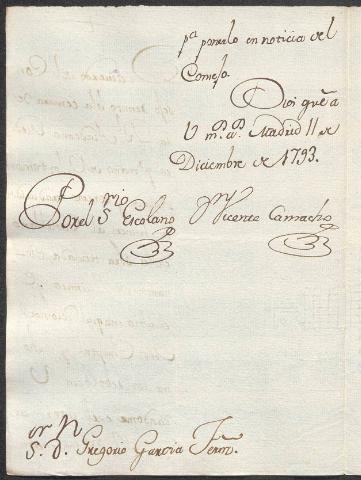 pa. ponerlo en noticia del
Consejo.
Dios gue. a
V. ms. as. Madrid 11 de
Diciembre de 1793.
Por el Srio. Escolano Vicente Camacho
Sor. Dn. Gregorio Garcia Fern.